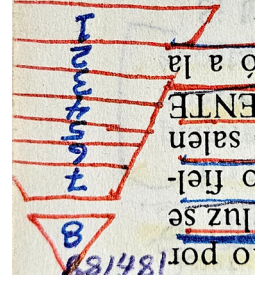 1
2
3
4
5
6
7
8
681481
to por
luz se
o fiel-
salen
ENTE
ó a la